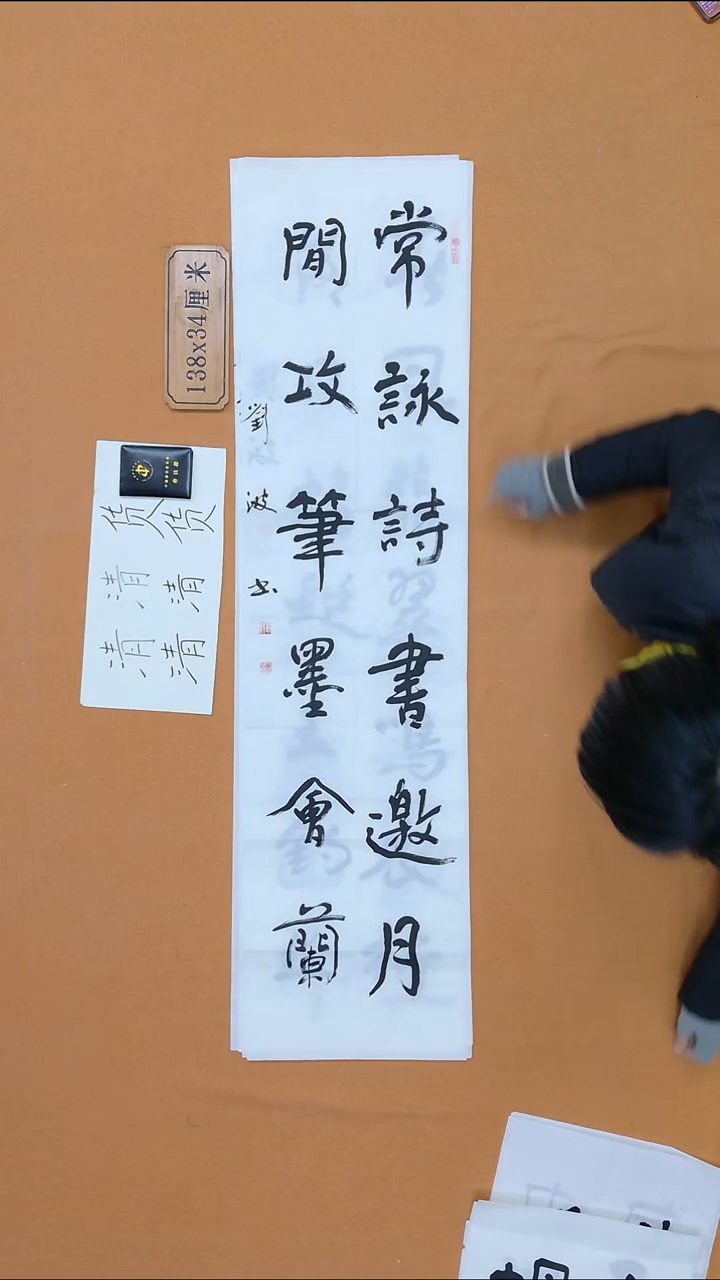 常詠詩書邀月
閒攻筆墨會蘭
劉波书
138x34厘米
货货
清清
清清